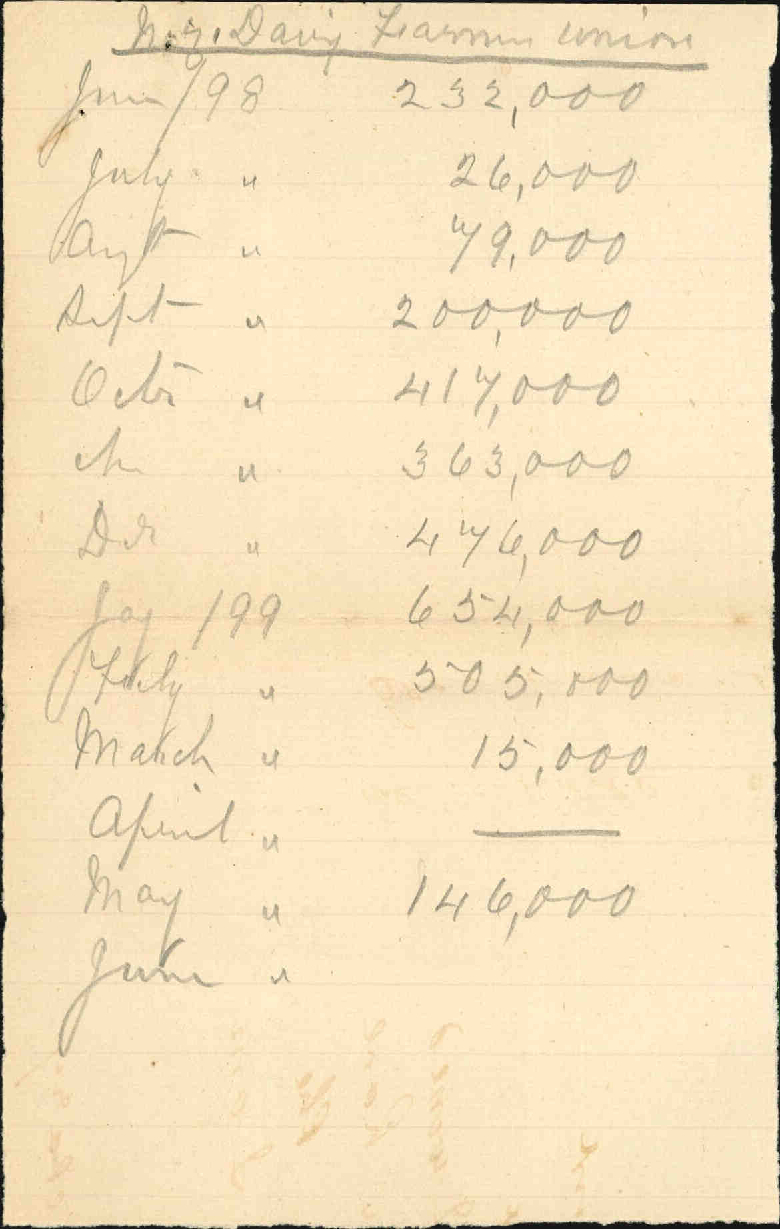 N.Y. Dairy Farmers Union
June /98 232,000
July " 26,000
Augt " 79,000
Sept " 200,000
Octr " 417,000
" 363,000
Dec " 476,000
Jay /99 654,000
" 505,000
March " 15,000
April " —
May " 146,000
June "